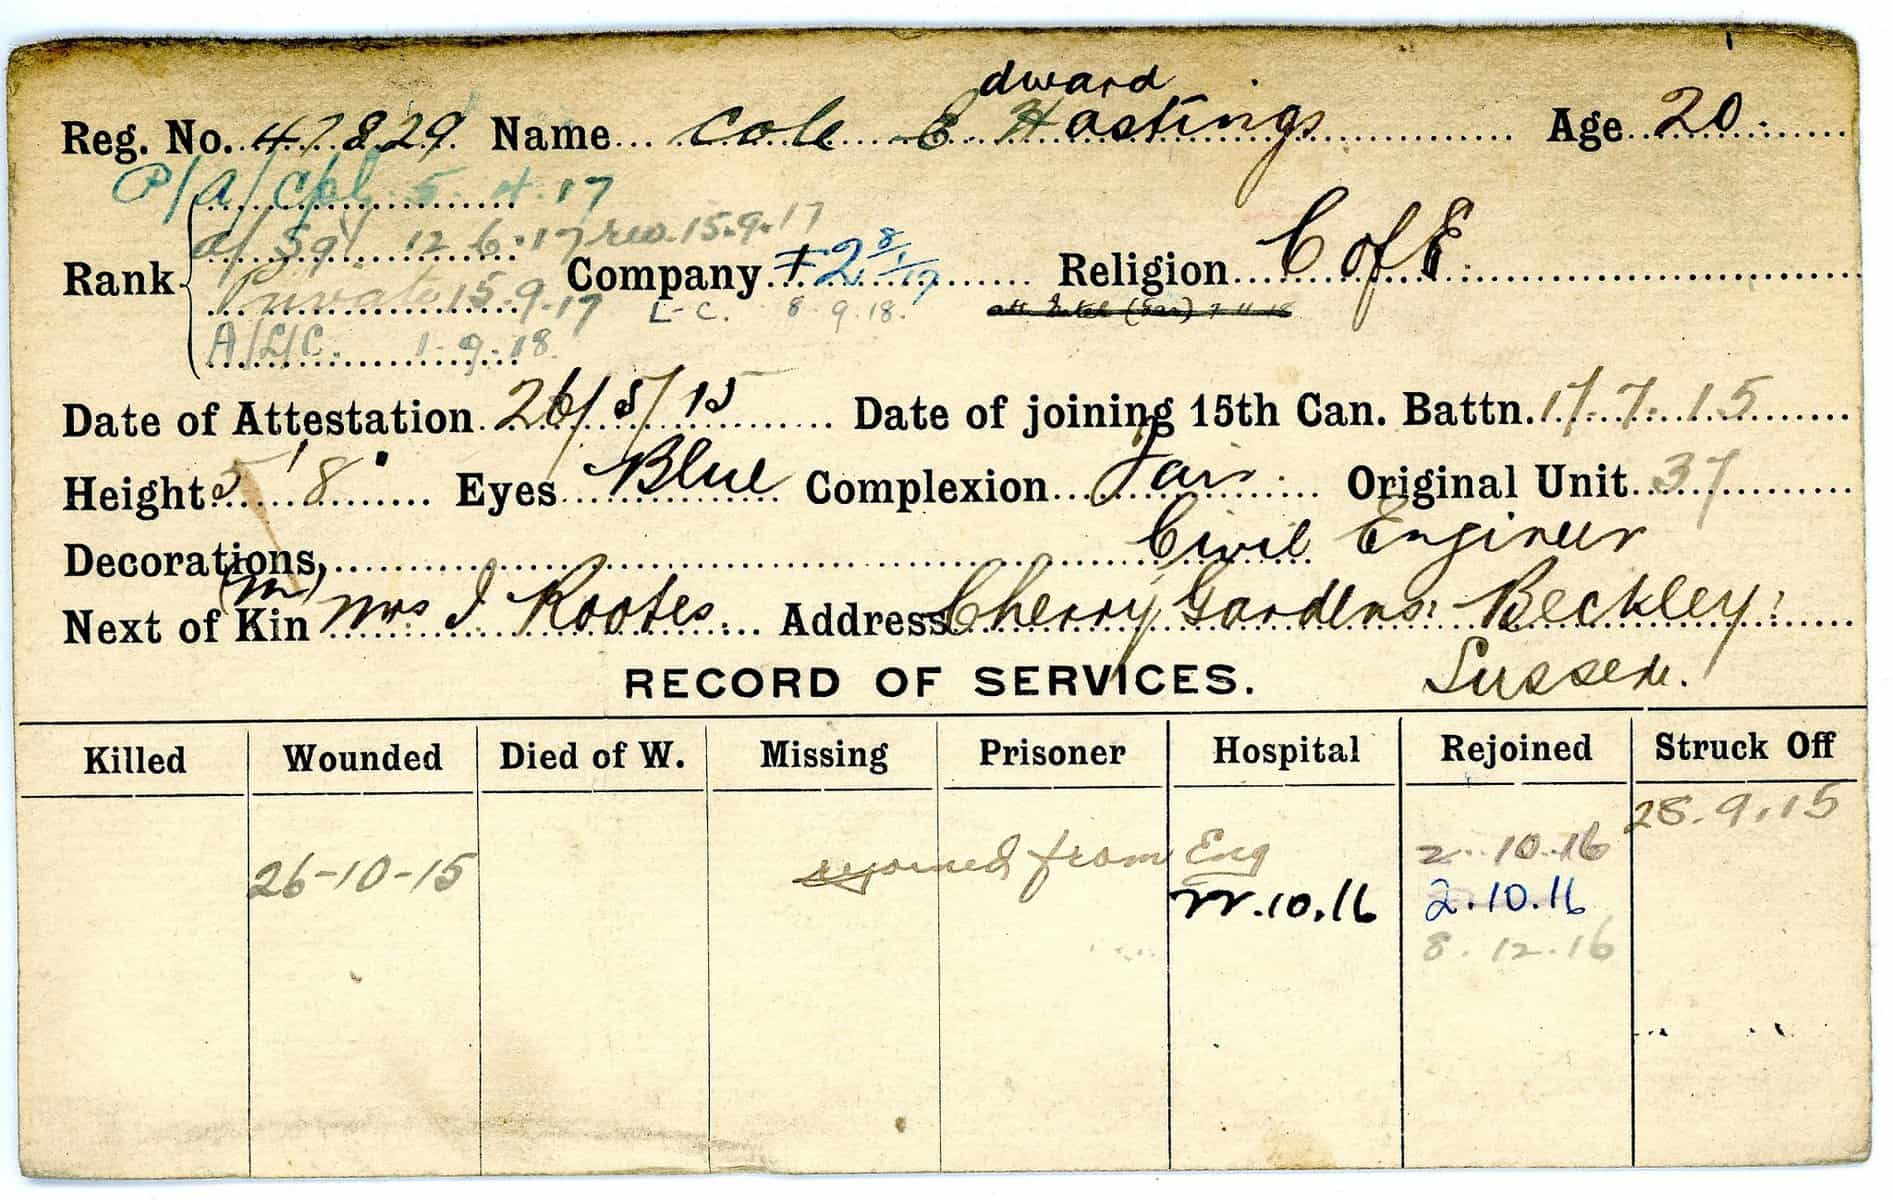 dward
Reg. No. 47829 Name Cole E Hastings Age 20
P/A/Cpl 5.4.17
a/Sgt 12.6.17 rev. 15.9.17
Rank Company 2 8/1/17 Religion C of E
Private 15.9.17 L-C. 8.9.18.
A/L/C. 1-9-18
Date of Attestation 26/5/15 Date of joining 15th Can. Battn. 17.7.15
Height 5' 8" Eyes Blue Complexion Fair Original Unit 37
Decorations, Civil Engineer
(m)
Next of Kin Mrs I Rootes Address Cherry Gardens: Beckley:
RECORD OF SERVICES. Sussex.
Killed Wounded Died of W. Missing Prisoner Hospital Rejoined Struck Off
28.9.15
26-10-15 rejoined from Eng 2.10.16
22.10.16 2.10.16
8.12.16